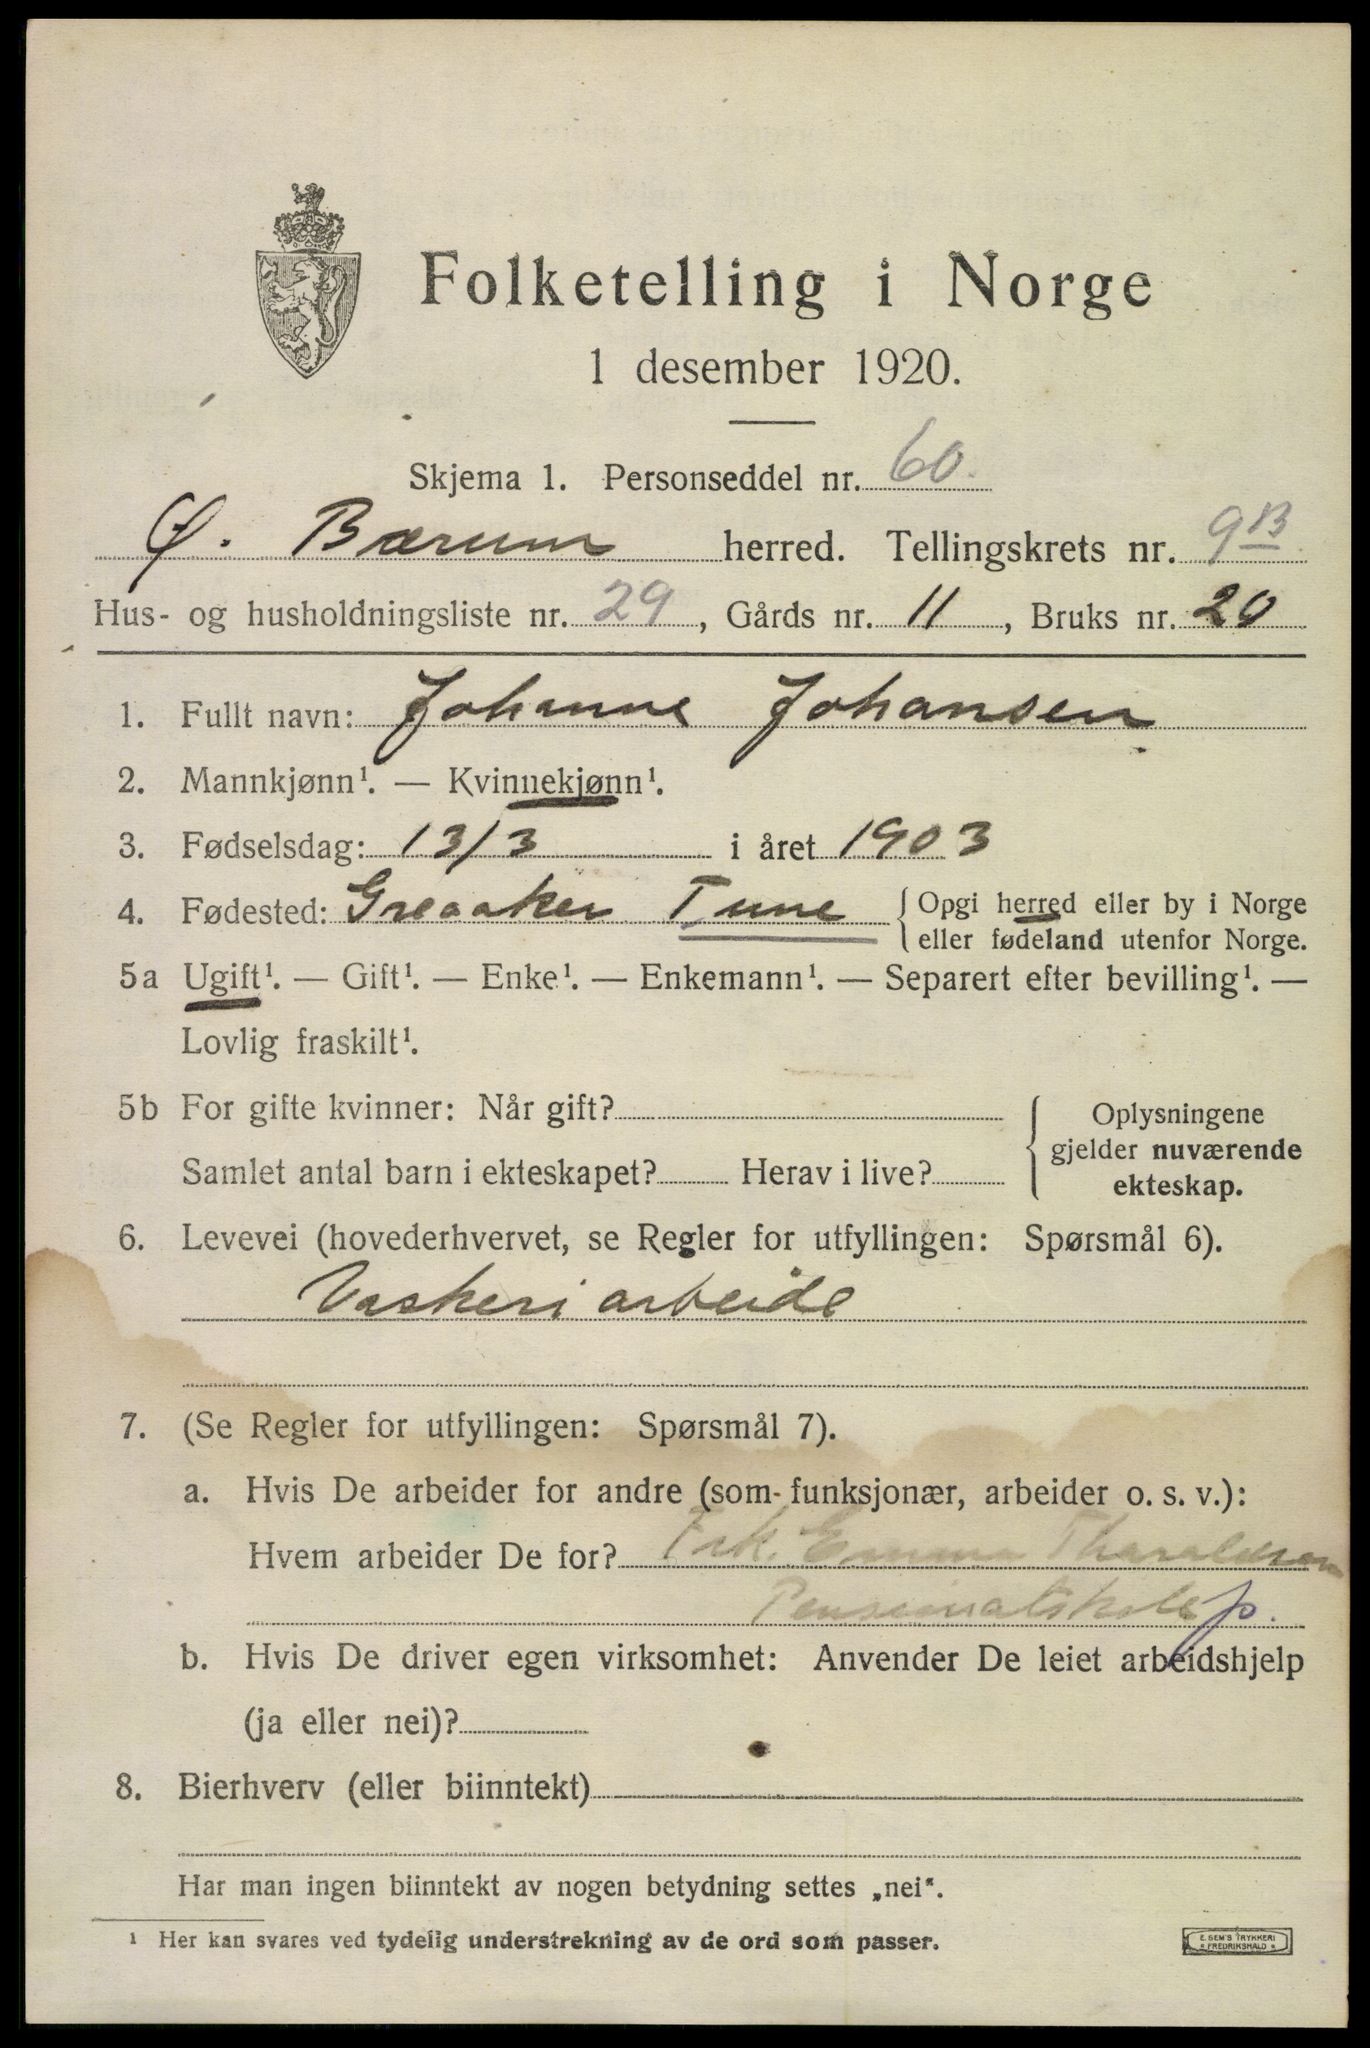 Folketelling i Norge
1 desember 1920.
Skjema 1. Personseddel nr. 60.
Ø. Bærum herred. Tellingskrets nr. 9B
Hus- og husholdningsliste nr. 29, Gårds nr. 11, Bruks nr. 20
1. Fullt navn: Johanne Johansen
2. Mannkjønn¹. — Kvinnekjønn¹.
3. Fødselsdag: 13/3 i året 1903
4. Fødested: Greaaker Tune { Opgi herred eller by i Norge
eller fødeland utenfor Norge.
5a Ugift¹. — Gift¹. — Enke¹. — Enkemann¹. — Separert efter bevilling¹. —
Lovlig fraskilt¹.
5b For gifte kvinner: Når gift?
Samlet antal barn i ekteskapet? Herav i live?
{ Oplysningene
gjelder nuværende
ekteskap.
6. Levevei (hovederhvervet, se Regler for utfyllingen: Spørsmål 6).
Vaskeri arbeide
7. (Se Regler for utfyllingen: Spørsmål 7).
a. Hvis De arbeider for andre (som funksjonær, arbeider o. s. v.):
Hvem arbeider De for? Frk. Emma Tharaldsen
Pensionatskole p.
b. Hvis De driver egen virksomhet: Anvender De leiet arbeidshjelp
(ja eller nei)?
8. Bierhverv (eller biinntekt)
Har man ingen biinntekt av nogen betydning settes „nei".
¹ Her kan svares ved tydelig understrekning av de ord som passer.
E. SEM'S TRYKKERI
* FREDRIKSHALD *